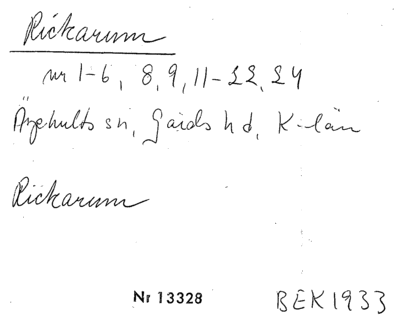 Rickarum
nr 1-6, 8, 9, 11-22, 24
Äsphults sn, Gärds hd, K-län
Rickarum
Nr 13328 BEK1933